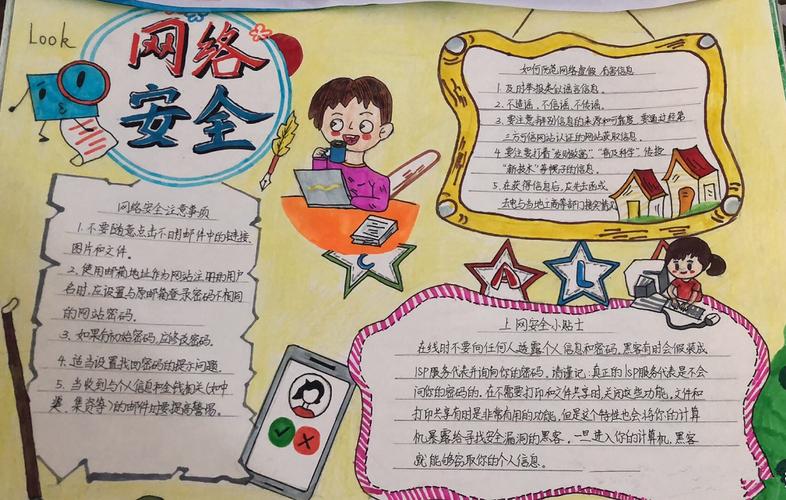 Look
网络
安全
网络安全注意事项
1.不要随意点击不明邮件中的链接、
图片和文件。
2.使用邮箱地址作为网站注册的用户
名时,应设置与原邮箱登录密码不相同
的网站密码。
3.如果有初始密码,应修改密码。
4.适当设置找回密码的提示问题。
5.当收到与个人信息和金钱相关(如中
奖、集资等)的邮件时要提高警惕。
如何防范网络虚假 有害信息
1.及时举报类似谣言信息。
2.不造谣,不信谣,不传谣。
3.要注意辨别信息的来源和可靠度,要通过经第
三方可信网站认证的网站获取信息。
4.要注意打着"发财致富"、"普及科学"、传授
"新技术"等幌子的信息。
5.在获得信息后,应先去函或
去电与当地工商等部门
C A L
上网安全小贴士
在线时不要向任何人透露个人信息和密码。黑客有时会假装成
ISP服务代表并询问你的密码。请谨记:真正的ISP服务代表是不会
问你的密码的。在不需要打印和文件共享时,关闭这些功能。文件和
打印共享有时是非常有用的功能,但是这个特性也会将你的计算
机暴露给寻找安全漏洞的黑客。一旦进入你的计算机,黑客
就能够窃取你的个人信息。